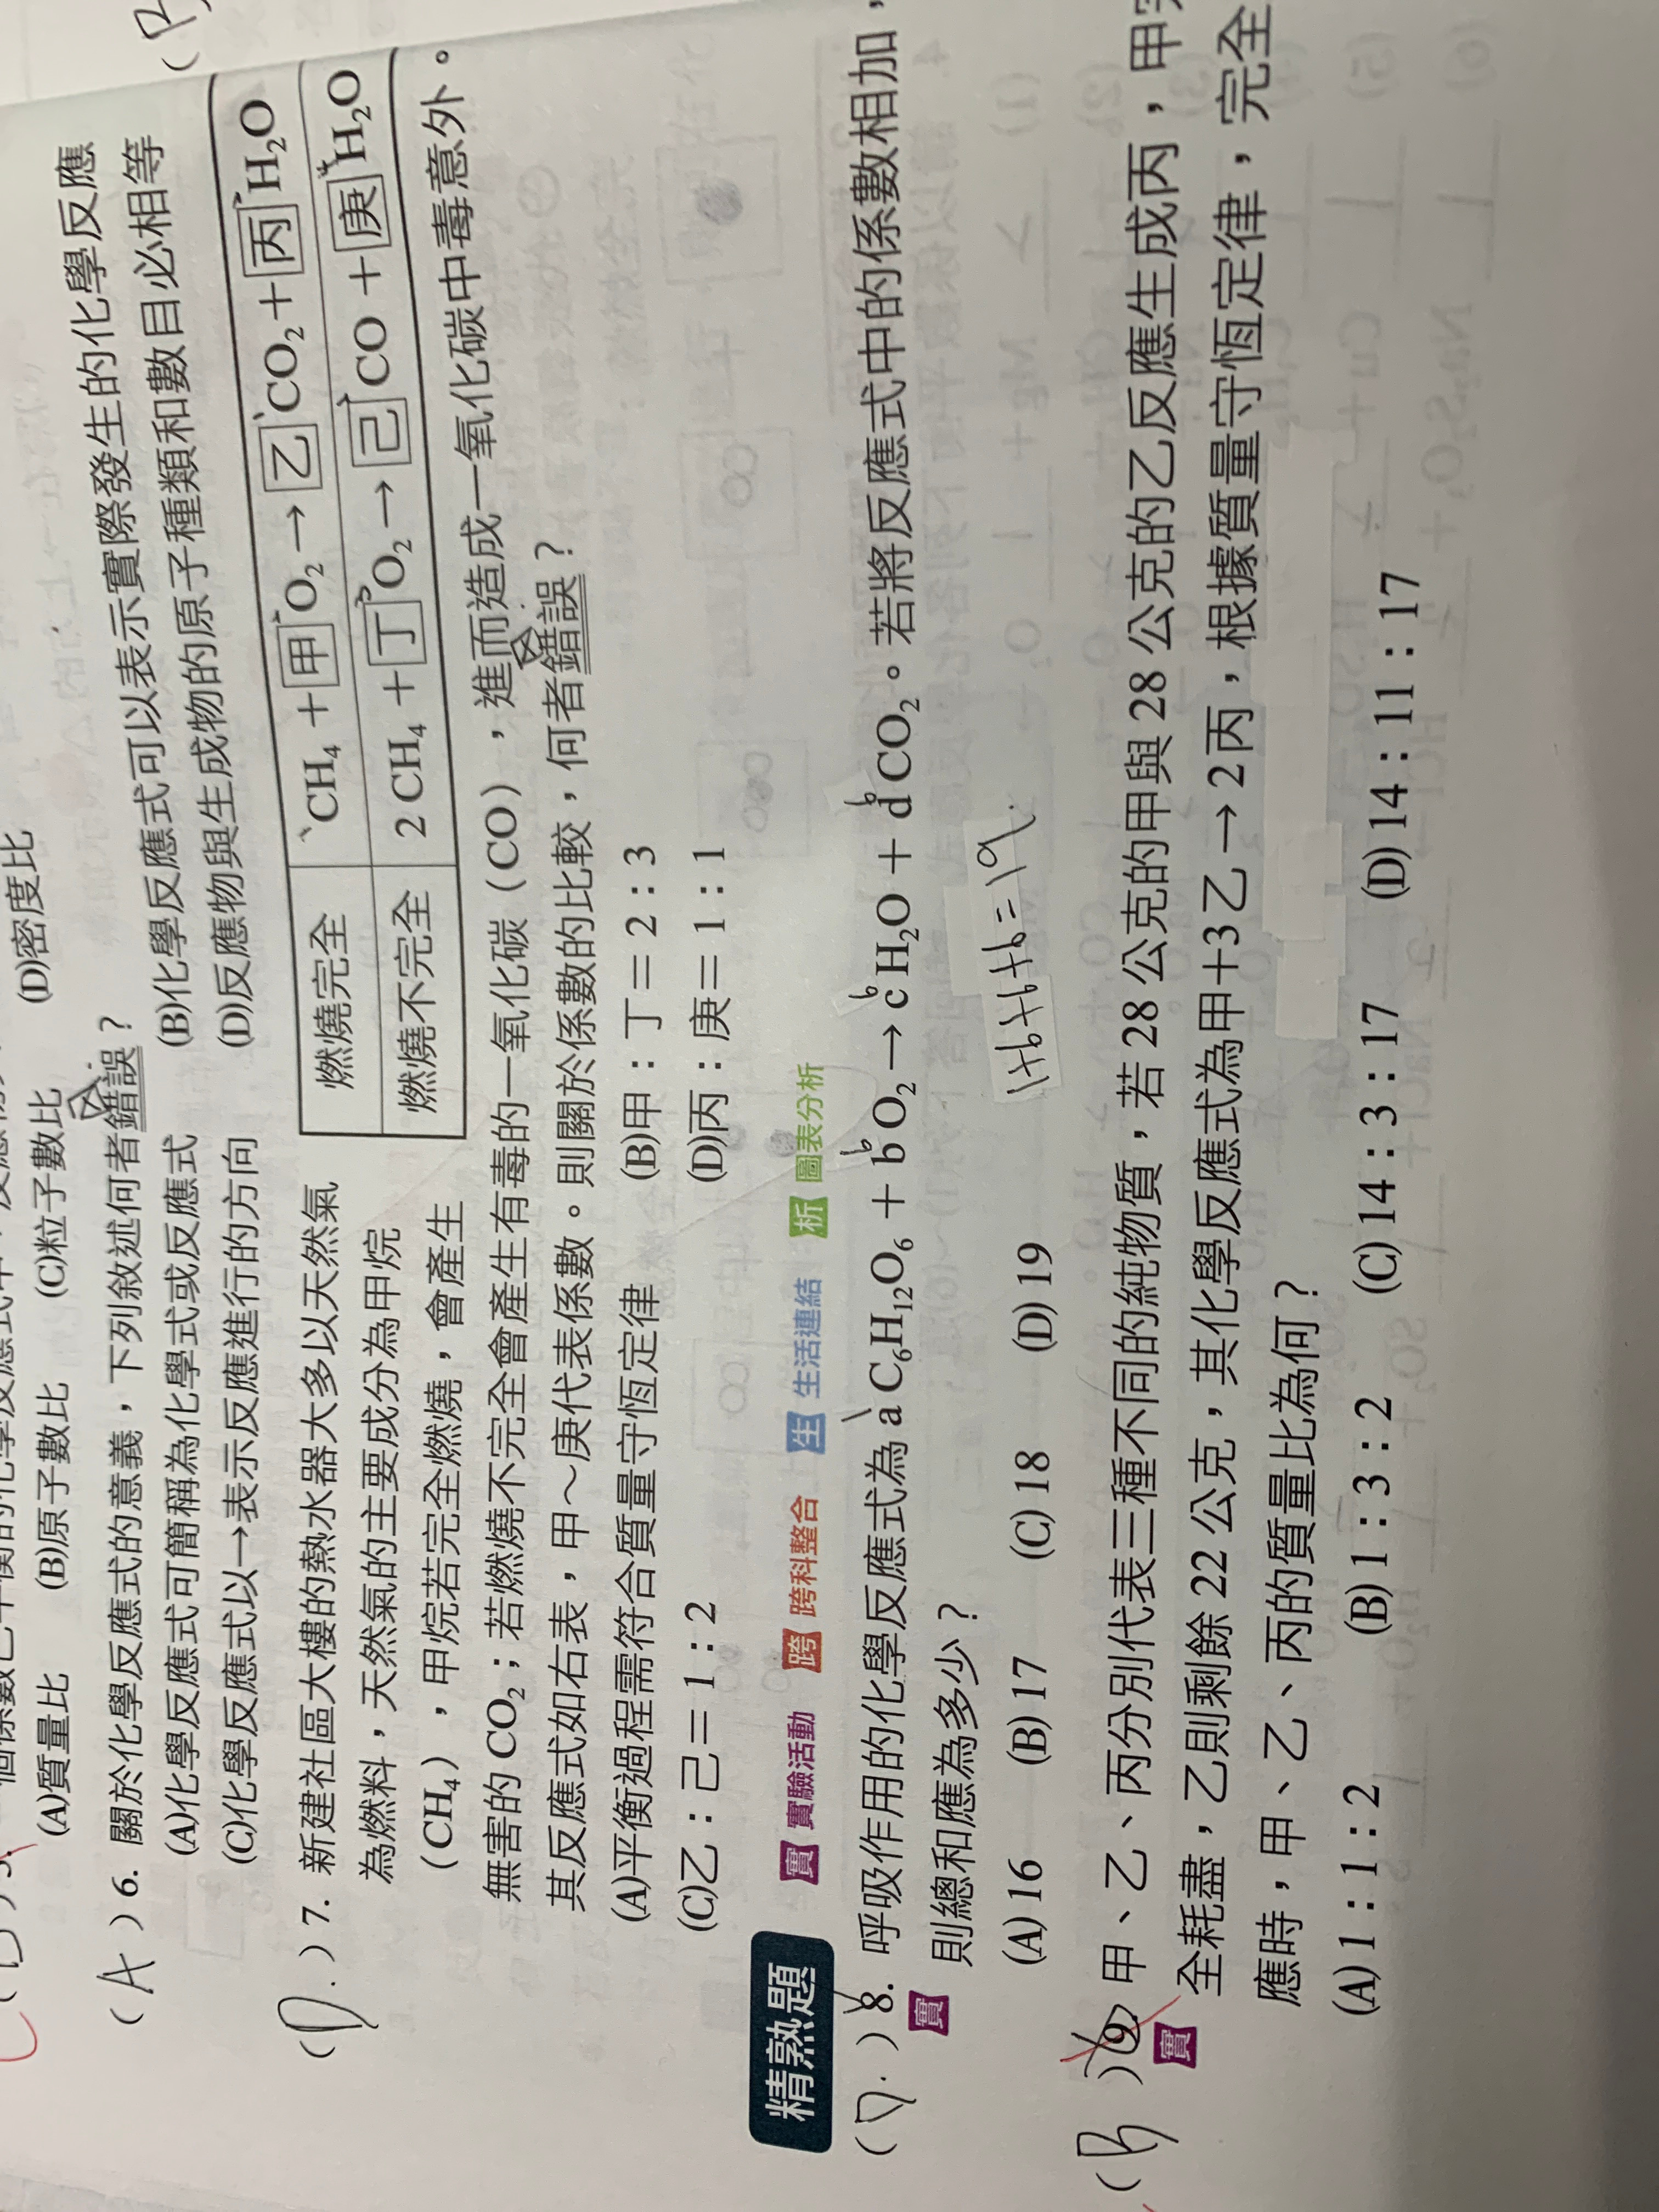 (A)質量比 (B)原子數比 (C)粒子數比 (D)密度比
( A ) 6. 關於化學反應式的意義，下列敘述何者錯誤？
(A)化學反應式可簡稱為化學式或反應式 (B)化學反應式可以表示實際發生的化學反應
(C)化學反應式以→表示反應進行的方向 (D)反應物與生成物的原子種類和數目必相等
( D. ) 7. 新建社區大樓的熱水器大多以天然氣
為燃料，天然氣的主要成分為甲烷
（CH₄），甲烷若完全燃燒，會產生
無害的 CO₂；若燃燒不完全會產生有毒的一氧化碳（CO），進而造成一氧化碳中毒意外。
其反應式如右表，甲～庚代表係數。則關於係數的比較，何者錯誤？
燃燒完全 CH₄ + 甲 O₂ → 乙 CO₂ + 丙 H₂O
燃燒不完全 2 CH₄ + 丁 O₂ → 己 CO + 庚 H₂O
(A)平衡過程需符合質量守恆定律 (B)甲：丁＝2：3
(C)乙：己＝1：2 (D)丙：庚＝1：1
精熟題 實 實驗活動 跨 跨科整合 生 生活連結 析 圖表分析
( D. ) 8. 呼吸作用的化學反應式為 a C₆H₁₂O₆ + b O₂ → c H₂O + d CO₂。若將反應式中的係數相加，
1 6 6 6
實 則總和應為多少？
1+6+6+6=19.
(A) 16 (B) 17 (C) 18 (D) 19
( B ) 9. 甲、乙、丙分別代表三種不同的純物質，若 28 公克的甲與 28 公克的乙反應生成丙，甲
實 全耗盡，乙則剩餘 22 公克，其化學反應式為甲+3 乙→ 2 丙，根據質量守恆定律，完全
應時，甲、乙、丙的質量比為何？
(A) 1：1：2 (B) 1：3：2 (C) 14：3：17 (D) 14：11：17